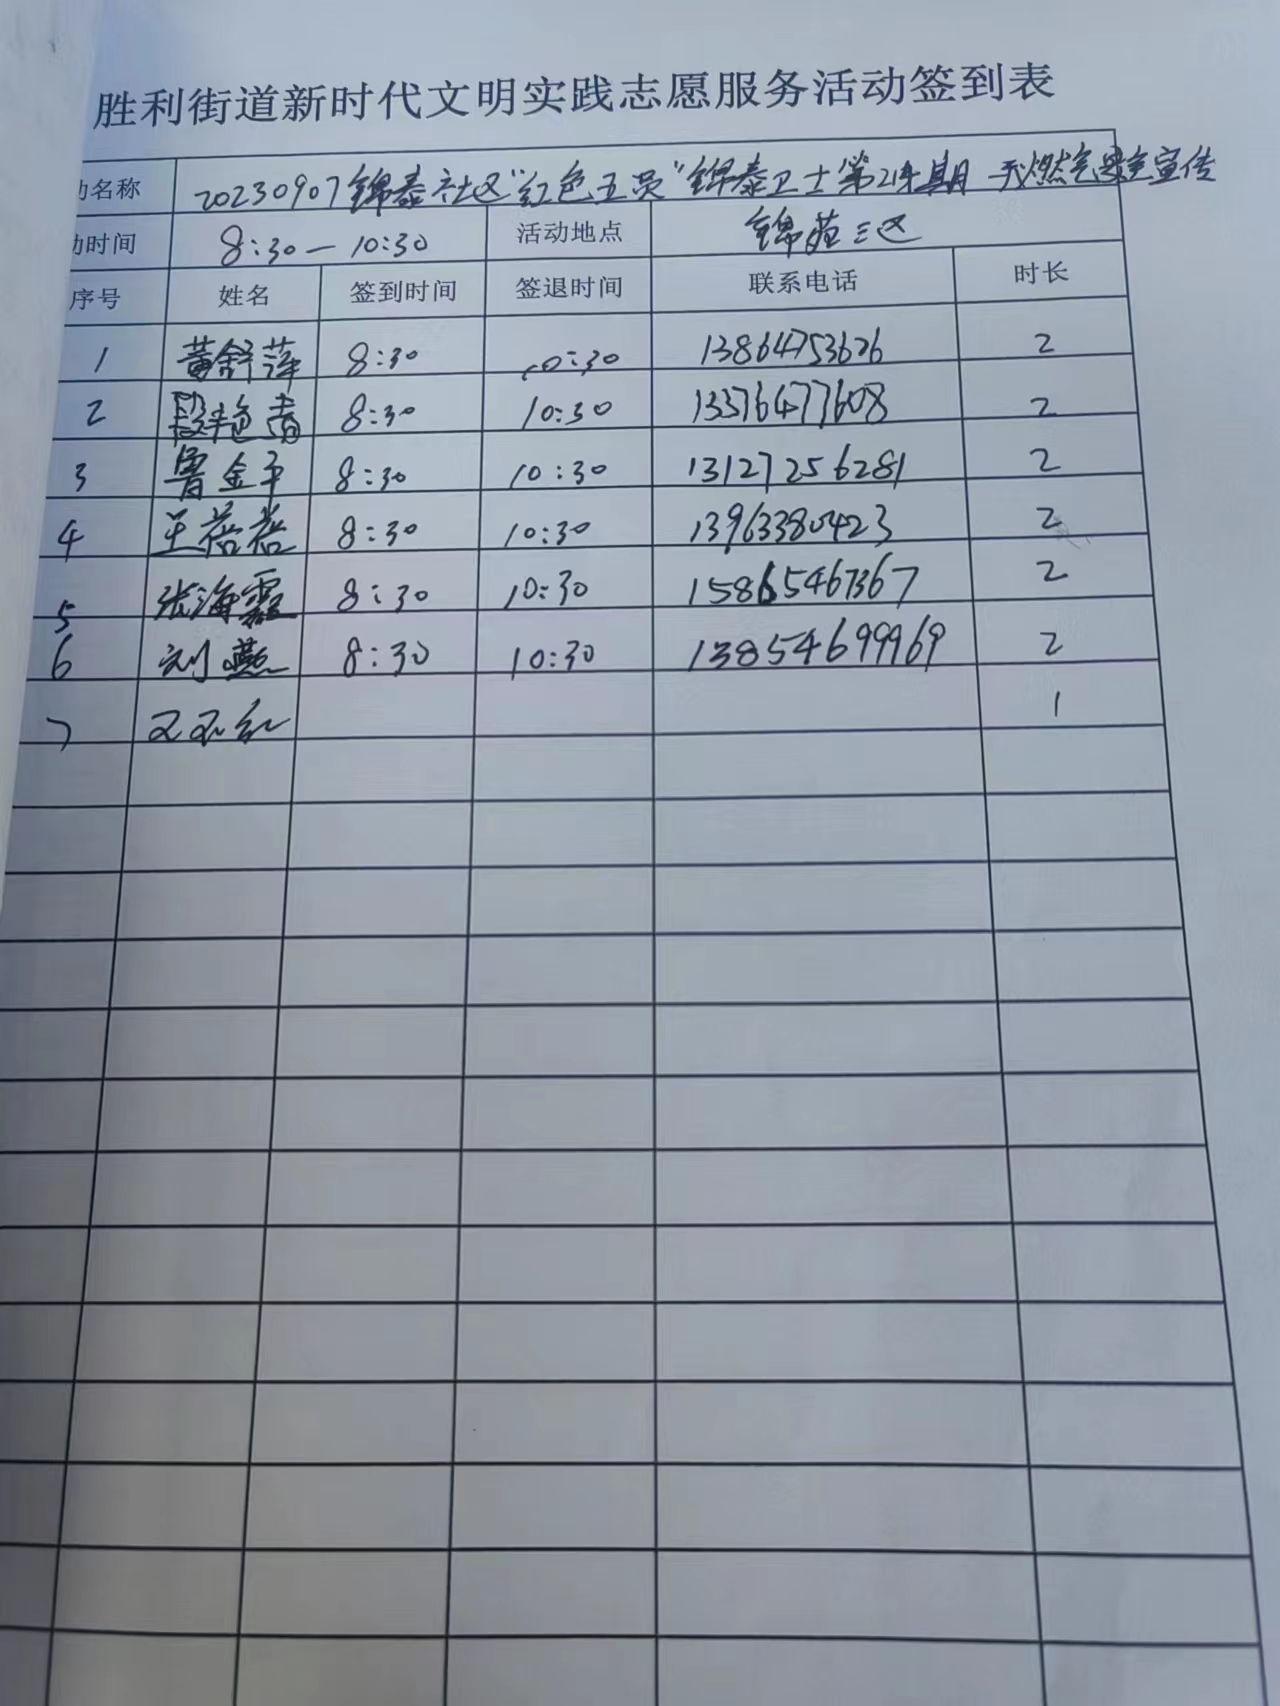 胜利街道新时代文明实践志愿服务活动签到表
动名称 20230907锦泰社区"红色五员"锦泰卫士第24期 天燃气安全宣传
动时间 8:30—10:30 活动地点 锦苑三区
序号 姓名 签到时间 签退时间 联系电话 时长
1 黄舒萍 8:30 10:30 13864753626 2
2 段艳青 8:30 10:30 13376477608 2
3 鲁金平 8:30 10:30 13127256281 2
4 王蓓蓓 8:30 10:30 13963380423 2
5 张海霞 8:30 10:30 15865467367 2
6 刘燕 8:30 10:30 13854699969 2
7 1